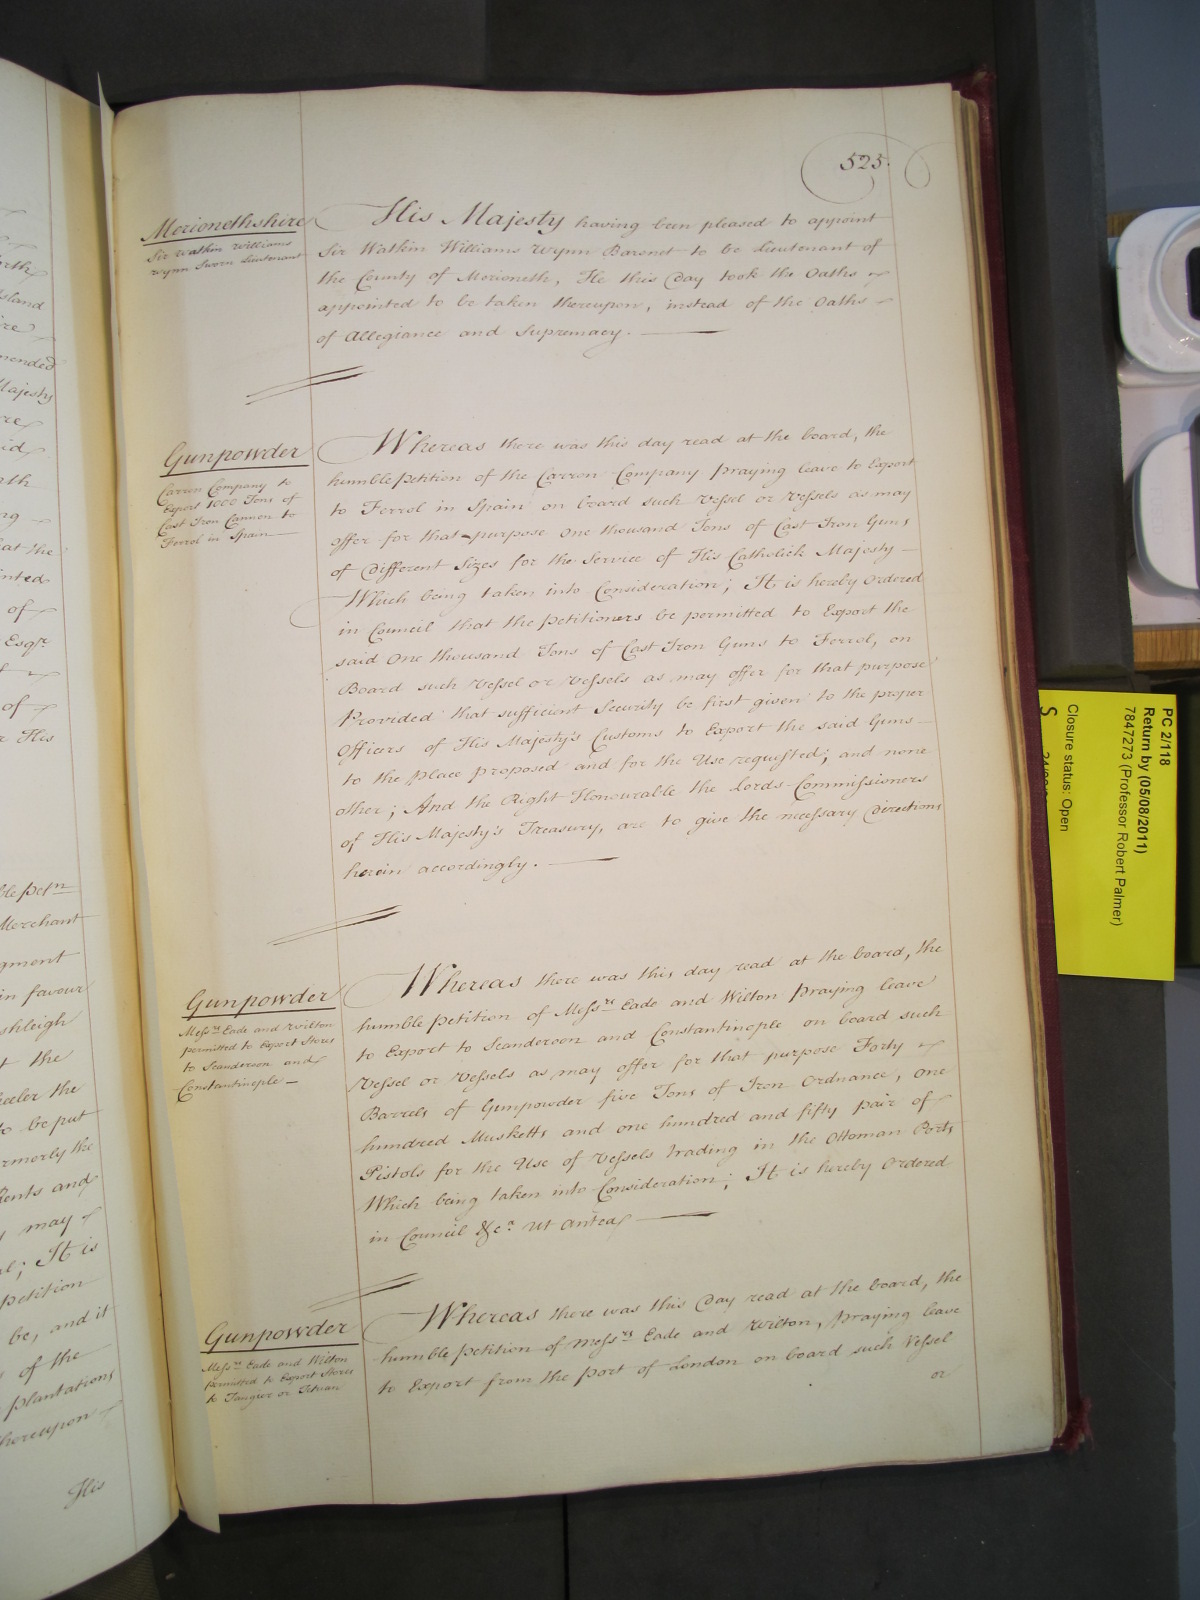 525.
Merionethshire
Sir Watkin Williams
Wynn Sworn Lieutenant
His Majesty having been pleased to appoint
Sir Watkin Williams Wynn Baronet to be Lieutenant of
the County of Merioneth, He this Day took the Oaths
appointed to be taken thereupon, instead of the Oaths
of Allegiance and Supremacy.
Gunpowder
Carron Company to
Export 1000 Tons of
Cast Iron Cannon to
Ferrol in Spain
Whereas there was this day read at the board, the
humble Petition of the Carron Company praying leave to Export
to Ferrol in Spain on board such Vessel or Vessels as may
offer for that purpose One thousand Tons of Cast Iron Guns
of Different Sizes for the Service of His Catholick Majesty
Which being taken into Consideration; It is hereby Ordered
in Council that the Petitioners be permitted to Export the
said One thousand Tons of Cast Iron Guns to Ferrol, on
Board such Vessel or Vessels as may offer for that purpose
Provided that sufficient Security be first given to the proper
Officers of His Majesty's Customs to Export the said Guns
to the Place proposed and for the Use requested; and none
other; And the Right Honourable the Lords Commissioners
of His Majesty's Treasury, are to give the necessary Directions
herein accordingly.
Gunpowder
Mess.rs Eade and Wilton
permitted to Export Stores
to Scanderoon and
Constantinople
Whereas there was this day read at the board, the
humble Petition of Mess.rs Eade and Wilton Praying leave
to Export to Scanderoon and Constantinople on board such
Vessel or Vessels as may offer for that purpose Forty
Barrels of Gunpowder five Tons of Iron Ordnance, one
hundred Musketts and one hundred and fifty pair of
Pistols for the Use of Vessels trading in the Ottoman Ports
Which being taken into Consideration; It is hereby Ordered
in Council &c.a ut antea
Gunpowder
Mess.rs Eade and Wilton
permitted to Export Stores
to Tangier or Tetuan
Whereas there was this Day read at the board, the
humble Petition of Mess.rs Eade and Wilton, Praying leave
to Export from the Port of London on board such Vessel
or
island
mended
Majesty
of
Esq.r
of
His
Merchant
in favour
the
the
to be put
formerly the
and
may
It is
petition
be, and it
of the
plantations
thereupon
His
PC 2/118
Return by (05/08/2011)
7847273 (Professor Robert Palmer)
Closure status: Open
S